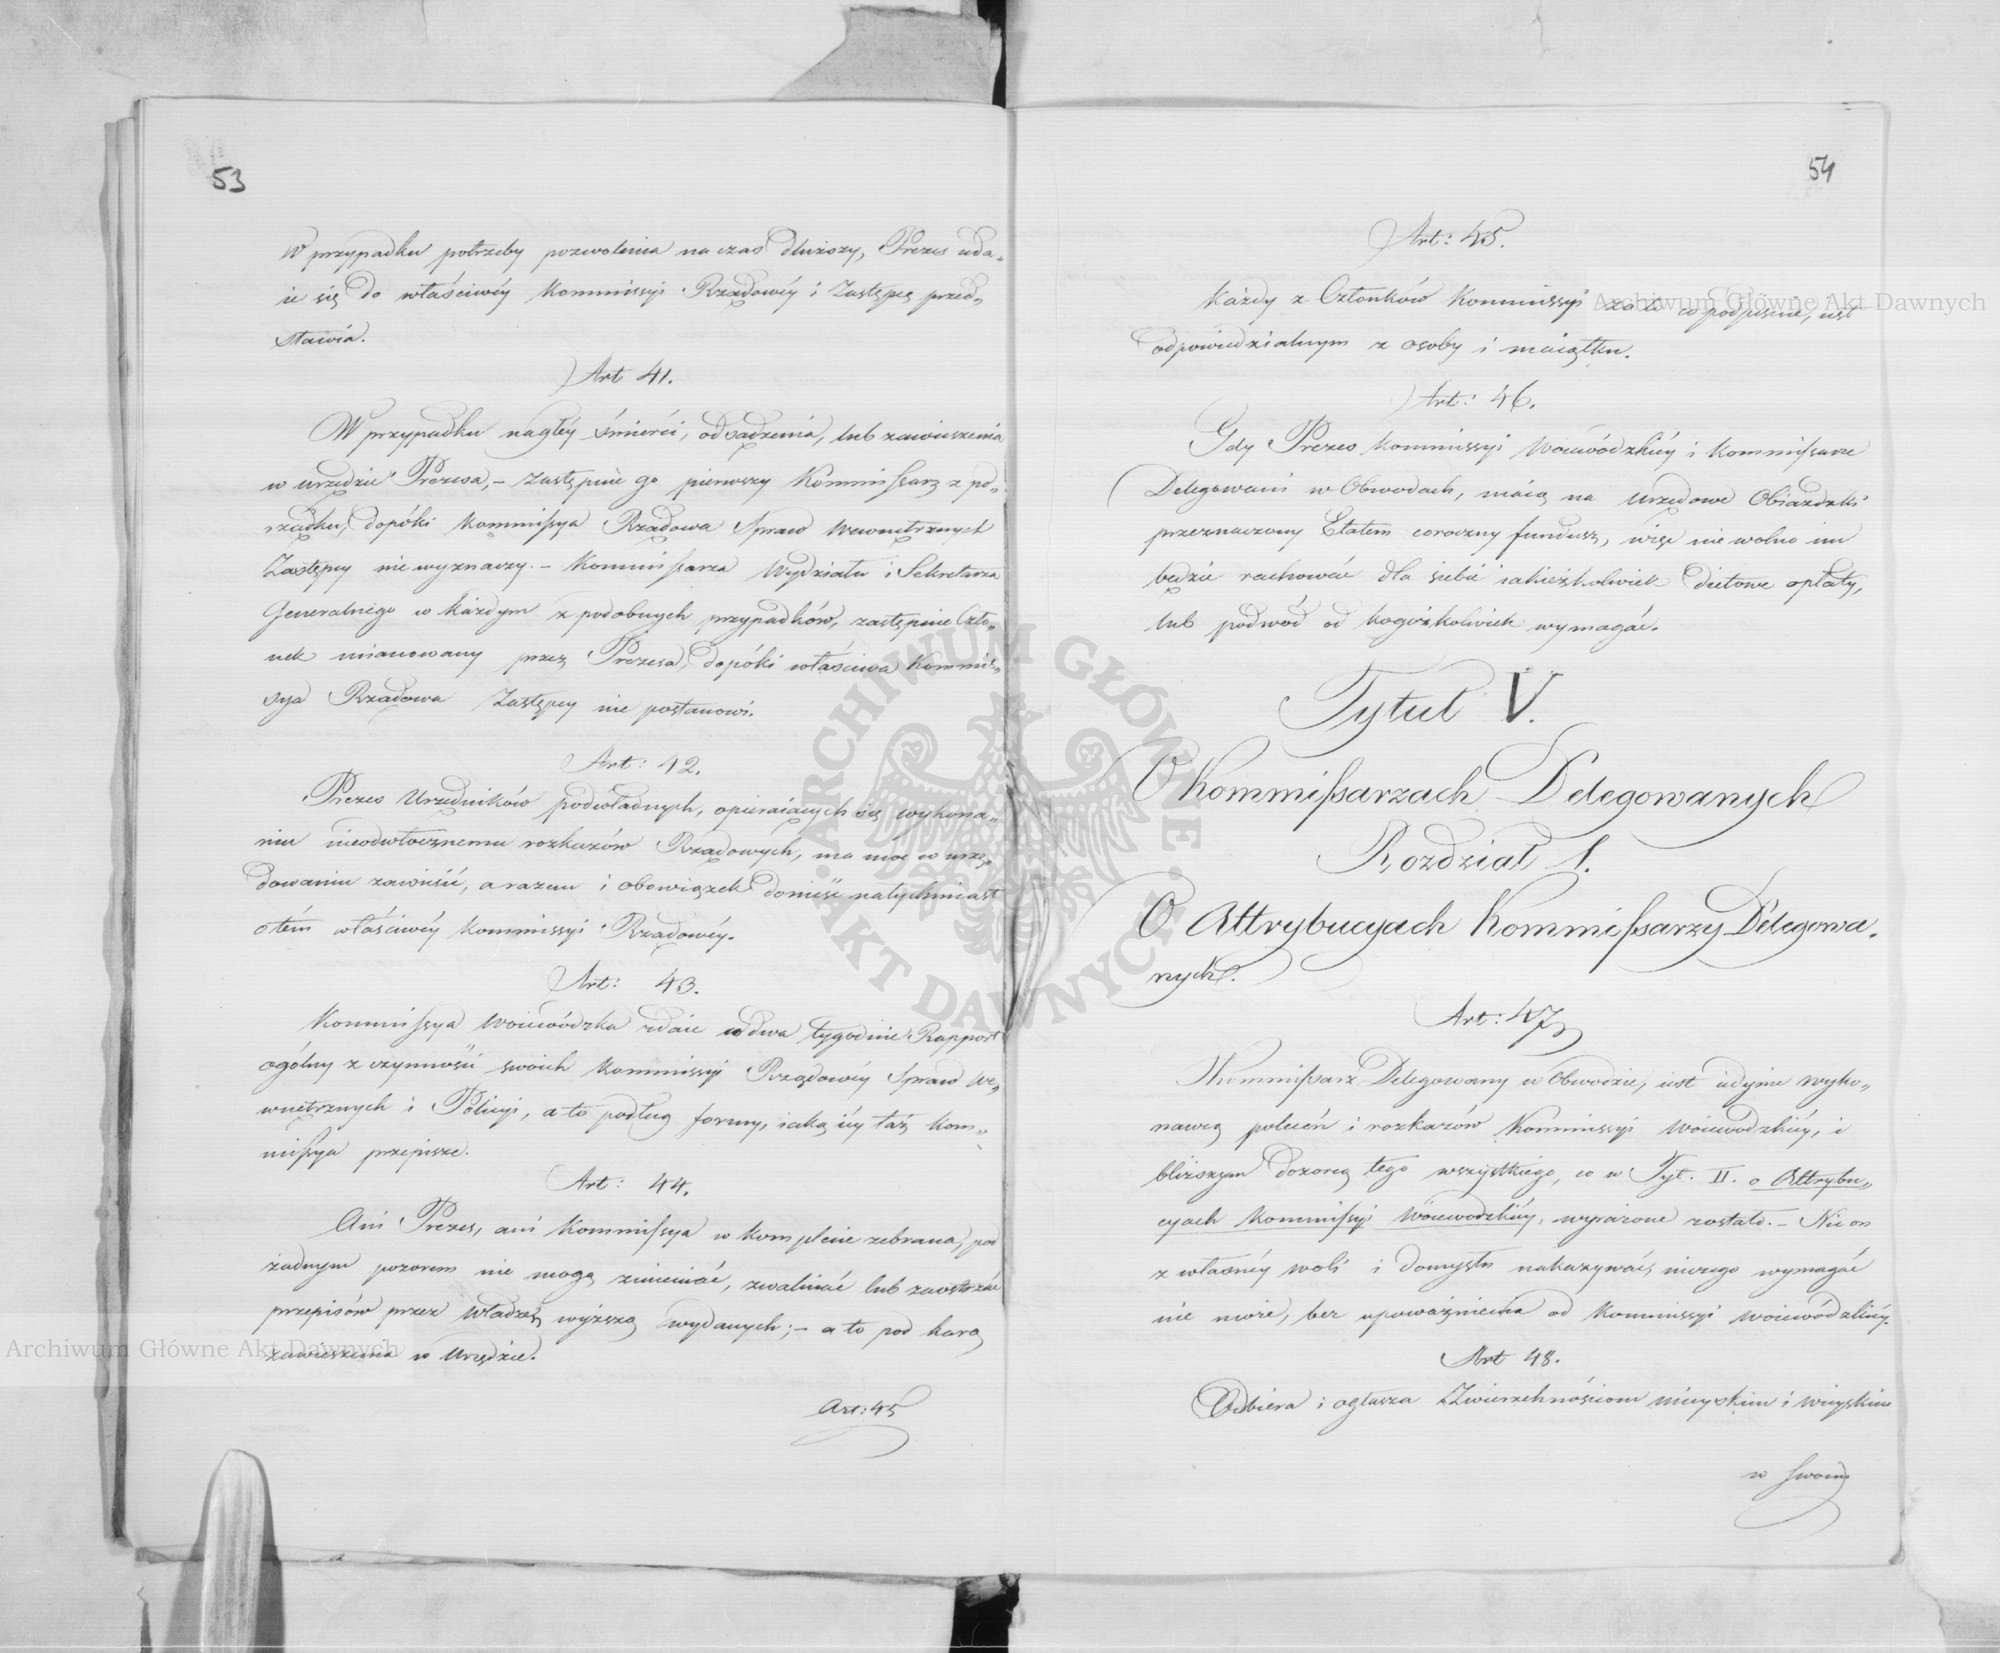 53
W przypadku potrzeby pozwolenia na czas dłuższy, Prezes uda-
ie się do właściwéy Kommissyi Rządowéy i Zastępcę przed-
stawia.
Art 41.
W przypadku nagłéy śmierci, odsądzenia, lub zawieszenia
w urzędzie Prezesa, – zastępuie go pierwszy Kommissarz z po-
rządku, dopóki Kommissya Rządowa Spraw Wewnętrznych
Zastępcy nie wyznaczy. – Kommissarza Wydziału i Sekretarza
Generalnégo w każdym z podobnych przypadków, zastępuie Czło-
nek mianowany przez Prezesa, dopóki właściwa Kommis-
sya Rządowa Zastępcy nie postanowi.
Art: 42.
Prezes Urzędników podwładnych, opieraiących się wykona-
niu nieodwłocznemu rozkazów Rządowych, ma moc w urzę-
dowaniu zawiesić, a razem i obowiązek donieść natychmiast
o tém właściwéy Kommissyi Rządowéy.
Art: 43.
Kommissya Woiewódzka zdaie co dwa tygodnie Rapport
ogólny z czynności swoich Kommissyi Rządowéy Spraw We-
wnętrznych i Policyi, a to podług formy, iaką iéy taż Kom-
missya przepisze.
Art: 44.
Ani Prezes, ani Kommissya w komplecie zebrana, pod
żadnym pozorem nie mogą zmieniać, zwalniać lub zaostrzać
przepisów przez Władzę wyższą wydanych; – a to pod karą
zawieszenia w Urzędzie.
Art: 45
54
Art: 45.
Każdy z Członków Kommissyi za to co podpisuie, iest
odpowiedzialnym z osoby i maiątku.
Art: 46.
Gdy Prezes Kommissyi Woiewódzkiéy i Kommissarze
Delegowani w Obwodach, maią na urzędowe Obiazdki
przeznaczony Etatem coroczny fundusz, więc nie wolno im
będzie rachować dla siebie iakieżkolwiek dietowe opłaty,
lub podwód od kogożkolwiek wymagać.
Tytuł V.
O Kommissarzach Delegowanych
Rozdział 1.
O Attrybucyach Kommissarzy Delegowa-
nych.
Art: 47
Kommissarz Delegowany w Obwodzie, iest iedynie wyko-
nawcą poleceń i rozkazów Kommissyi Woiewodzkiéy, i
bliższym dozorcą tego wszystkiego, co w Tyt. II. o Attrybu-
cyach Kommissyi Woiewodzkiéy, wyrażone zostało. – Nic on
z własnéy woli i domysłu nakazywać, niczego wymagać
nie może, bez upoważnienia od Kommissyi Woiewódzkiéy.
Art 48.
Odbiera i ogłasza Zwierzchnościom mieyskim i wieyskim
w swoim
Archiwum Główne Akt Dawnych
Archiwum Główne Akt Dawnych
ARCHIWUM GŁÓWNE AKT DAWNYCH